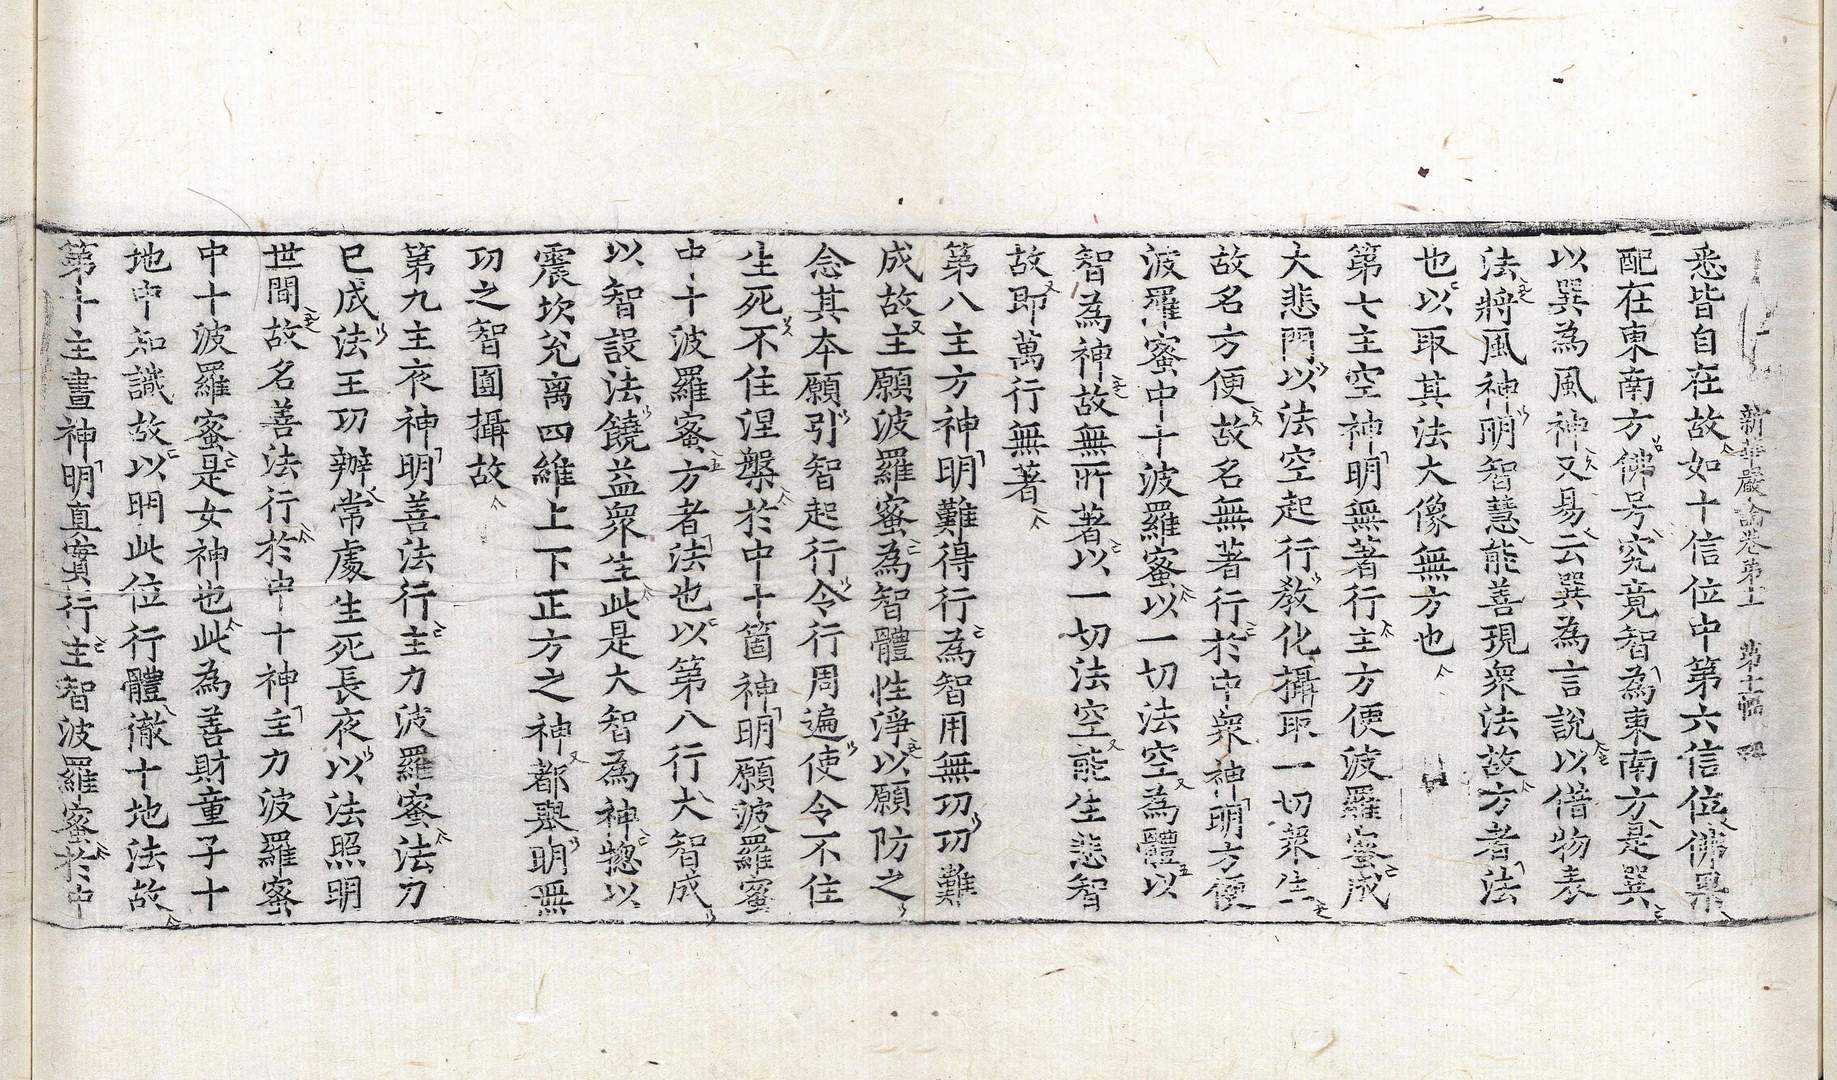 新華嚴論卷第十一　第十二幅
悉皆自在故如十信位中第六信位佛果
配在東南方佛号究竟智為東南方是巽
以巽為風神又易云巽為言說以借物表
法將風神明智慧能善現衆法故方者法
也以取其法大像無方也
第七主空神明無著行主方便波羅蜜成
大悲門以法空起行教化攝取一切衆生
故名方便故名無著行於中衆神明方便
波羅蜜中十波羅蜜以一切法空為體以
智為神故無所著以一切法空能生悲智
故即萬行無著
第八主方神明難得行為智用無功功難
成故主願波羅蜜為智體性淨以願防之
念其本願引智起行令行周遍使令不住
生死不住涅槃於中十箇神明願波羅蜜
中十波羅蜜方者法也以第八行大智成
以智設法饒益衆生此是大智為神惣以
震坎兊离四維上下正方之神都舉明無
功之智圓攝故
第九主夜神明善法行主力波羅蜜法力
已成法王功辦常處生死長夜以法照明
世間故名善法行於中十神主力波羅蜜
中十波羅蜜是女神也此為善財童子十
地中知識故以明此位行體徹十地法故
第十主晝神明真實行主智波羅蜜於中